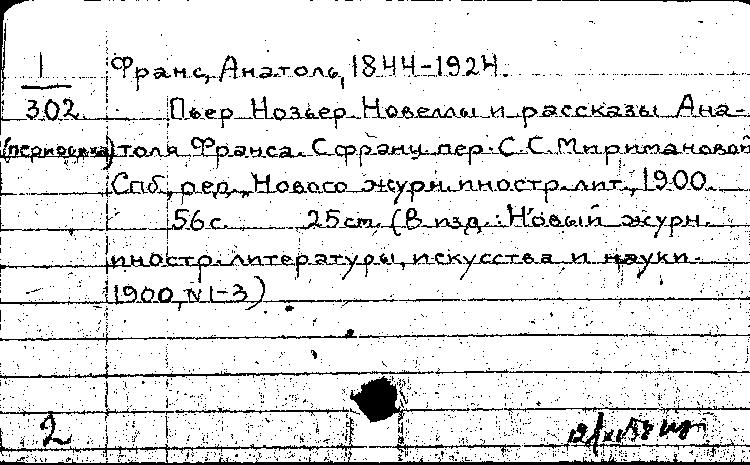 1
Франс, Анатоль, 1844-1924.
302.
Пьер Нозьер. Новеллы и рассказы Ана-
(периодика) толя Франса. С франц. пер. С.С. Миримановой
Спб, ред. "Нового журн. иностр. лит., 1900.
56 с. 25 cm. (В изд.: Новый журн.
иностр. литературы, искусства и науки.
1900, №1-3)
2